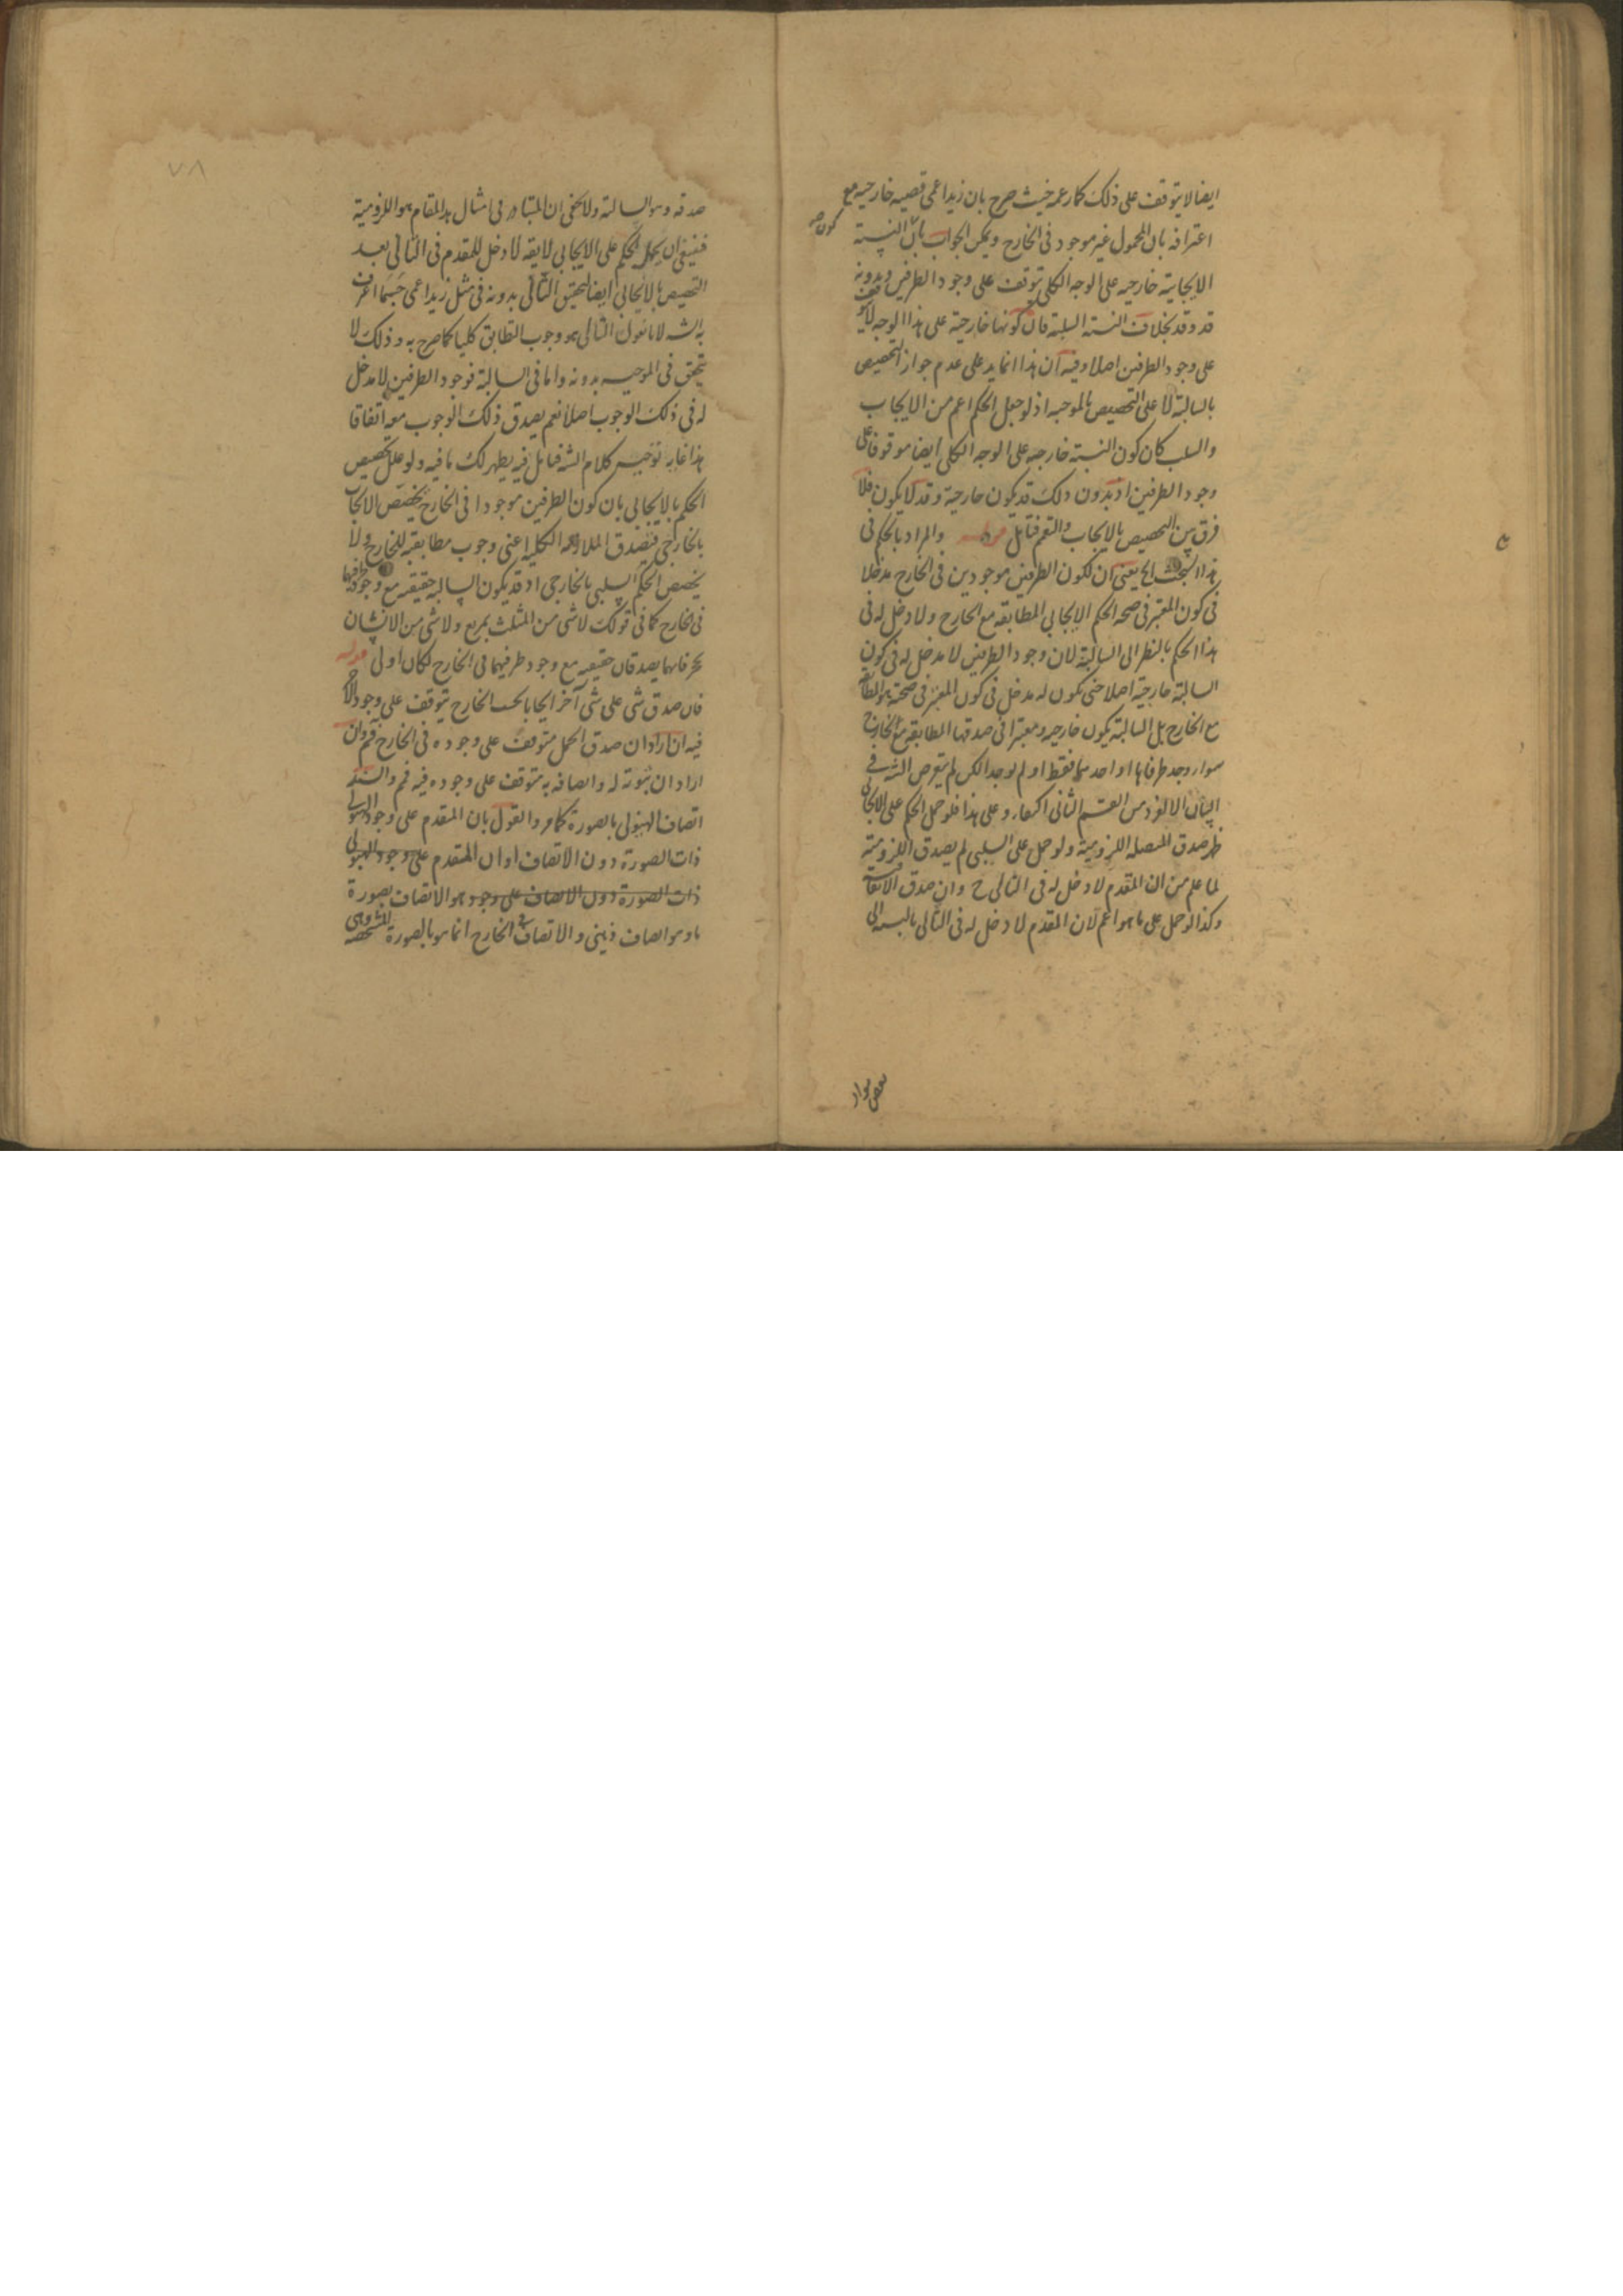 ايضا لا يتوقف على ذلك كما زعمه حيث صرح بان زيدا اعمى قضيه خارجيه مع
كون صح
اعترافه بان المحمول غير موجود فى الخارج ويمكن الجواب بان النسبة
الايجابية خارجيه على الوجه الكلى يتوقف على وجود الطرفين وبدونه
قد وقد بخلاف النسبة السلبية فان كونها خارجية على هذا الوجه لا يتوقف
على وجود الطرفين اصلا وفيه ان هذا انما يدل على عدم جواز التخصيص
بالسالبة لا على التخصيص بالموجبه اذ لو جعل الحكم اعم من الايجاب
والسلب كان كون النسبة خارجيه على الوجه الكلى ايضا موقوفا على
وجود الطرفين اذ بدون ذلك قد يكون خارجية وقد لا يكون فلا
فرق بين التخصيص بالايجاب والتعميم فتأمل قوله والمراد بالحكم فى
هذا البحث الخ يعنى ان لكون الطرفين موجودين فى الخارج مدخلا
فى كون المعتبر فى صحه الحكم الايجابى المطابقه مع الخارج ولا دخل له فى
هذا الحكم بالنظر الى السالبة لان وجود الطرفين لا مدخل له فى كون
السالبة خارجية اصلا حتى يكون له مدخل فى كون المعتبر فى صحته هو المطابقة
مع الخارج بل السالبة يكون خارجيه ومعتبرا فى صدقها المطابقه مع الخارج
سواء وجد طرفاها او احدهما فقط او لم يوجد لكن لم يتعرض الشه فى
البيان الا لفرد من القسم الثانى اكتفاء وعلى هذا فلو حمل الحكم على الايجابى
ظهر صدق المتصله اللزومية ولو حمل على السلبى لم يصدق اللزومية
لما علم من ان المقدم لا دخل له فى التالى ح وان صدق الاتفاقية
وكذا لو حمل على ما هو اعم لان المقدم لا دخل له فى التالى بالنسبه الى
بعض مواد
٧٨
صدقه وهو السالبة ولا يخفى ان المتبادر فى امثال هذا المقام هو اللزومية
فينبغى ان يحمل الحكم على الايجابى لا يقه لا دخل للمقدم فى التالى بعد
التخصيص بالايجابى ايضا لتحقق التالى بدونه فى مثل زيد اعمى حسبما اعترف
به الشه لانا نقول التالى هو وجوب التطابق كليا كما صرح به وذلك لا
يتحقق فى الموجبه بدونه واما فى السالبة فوجود الطرفين لا مدخل
له فى ذلك الوجوب اصلا نعم يصدق ذلك الوجوب معه اتفاقا
هذا غايه توجيه كلام الشه فتأمل فيه يظهر لك ما فيه ولو علل تخصيص
الحكم بالايجابى بان كون الطرفين موجودا فى الخارج يخصص الايجاب
بالخارجى فيصدق الملازمه الكليه اعنى وجوب مطابقته للخارج ولا
يخصص الحكم السلبى بالخارجى اذ قد يكون السالبه حقيقيه مع وجود طرفيها
فى الخارج كما فى قولك لا شى من المثلث بمربع ولا شى من الانسان
بحجر فانهما يصدقان حقيقيه مع وجود طرفيهما فى الخارج لكان اولى قوله
فان صدق شى على شى آخر ايجابا بحسب الخارج يتوقف على وجود الآخر
فيه ان اراد ان صدق الحمل متوقف على وجوده فى الخارج فمم وان
اراد ان ثبوته له واتصافه به متوقف على وجوده فيه فمم والسند
اتصاف الهيولى بالصورة كما مر والقول بان المقدم على وجود الهيولى
ذات الصورة دون الاتصاف او ان المتقدم على وجود الهيولى
ذات الصورة دون الاتصاف على وجود هو الاتصاف بصورة
ما وهو اتصاف ذهنى والاتصاف فى الخارج انما هو بالصورة المشخصه